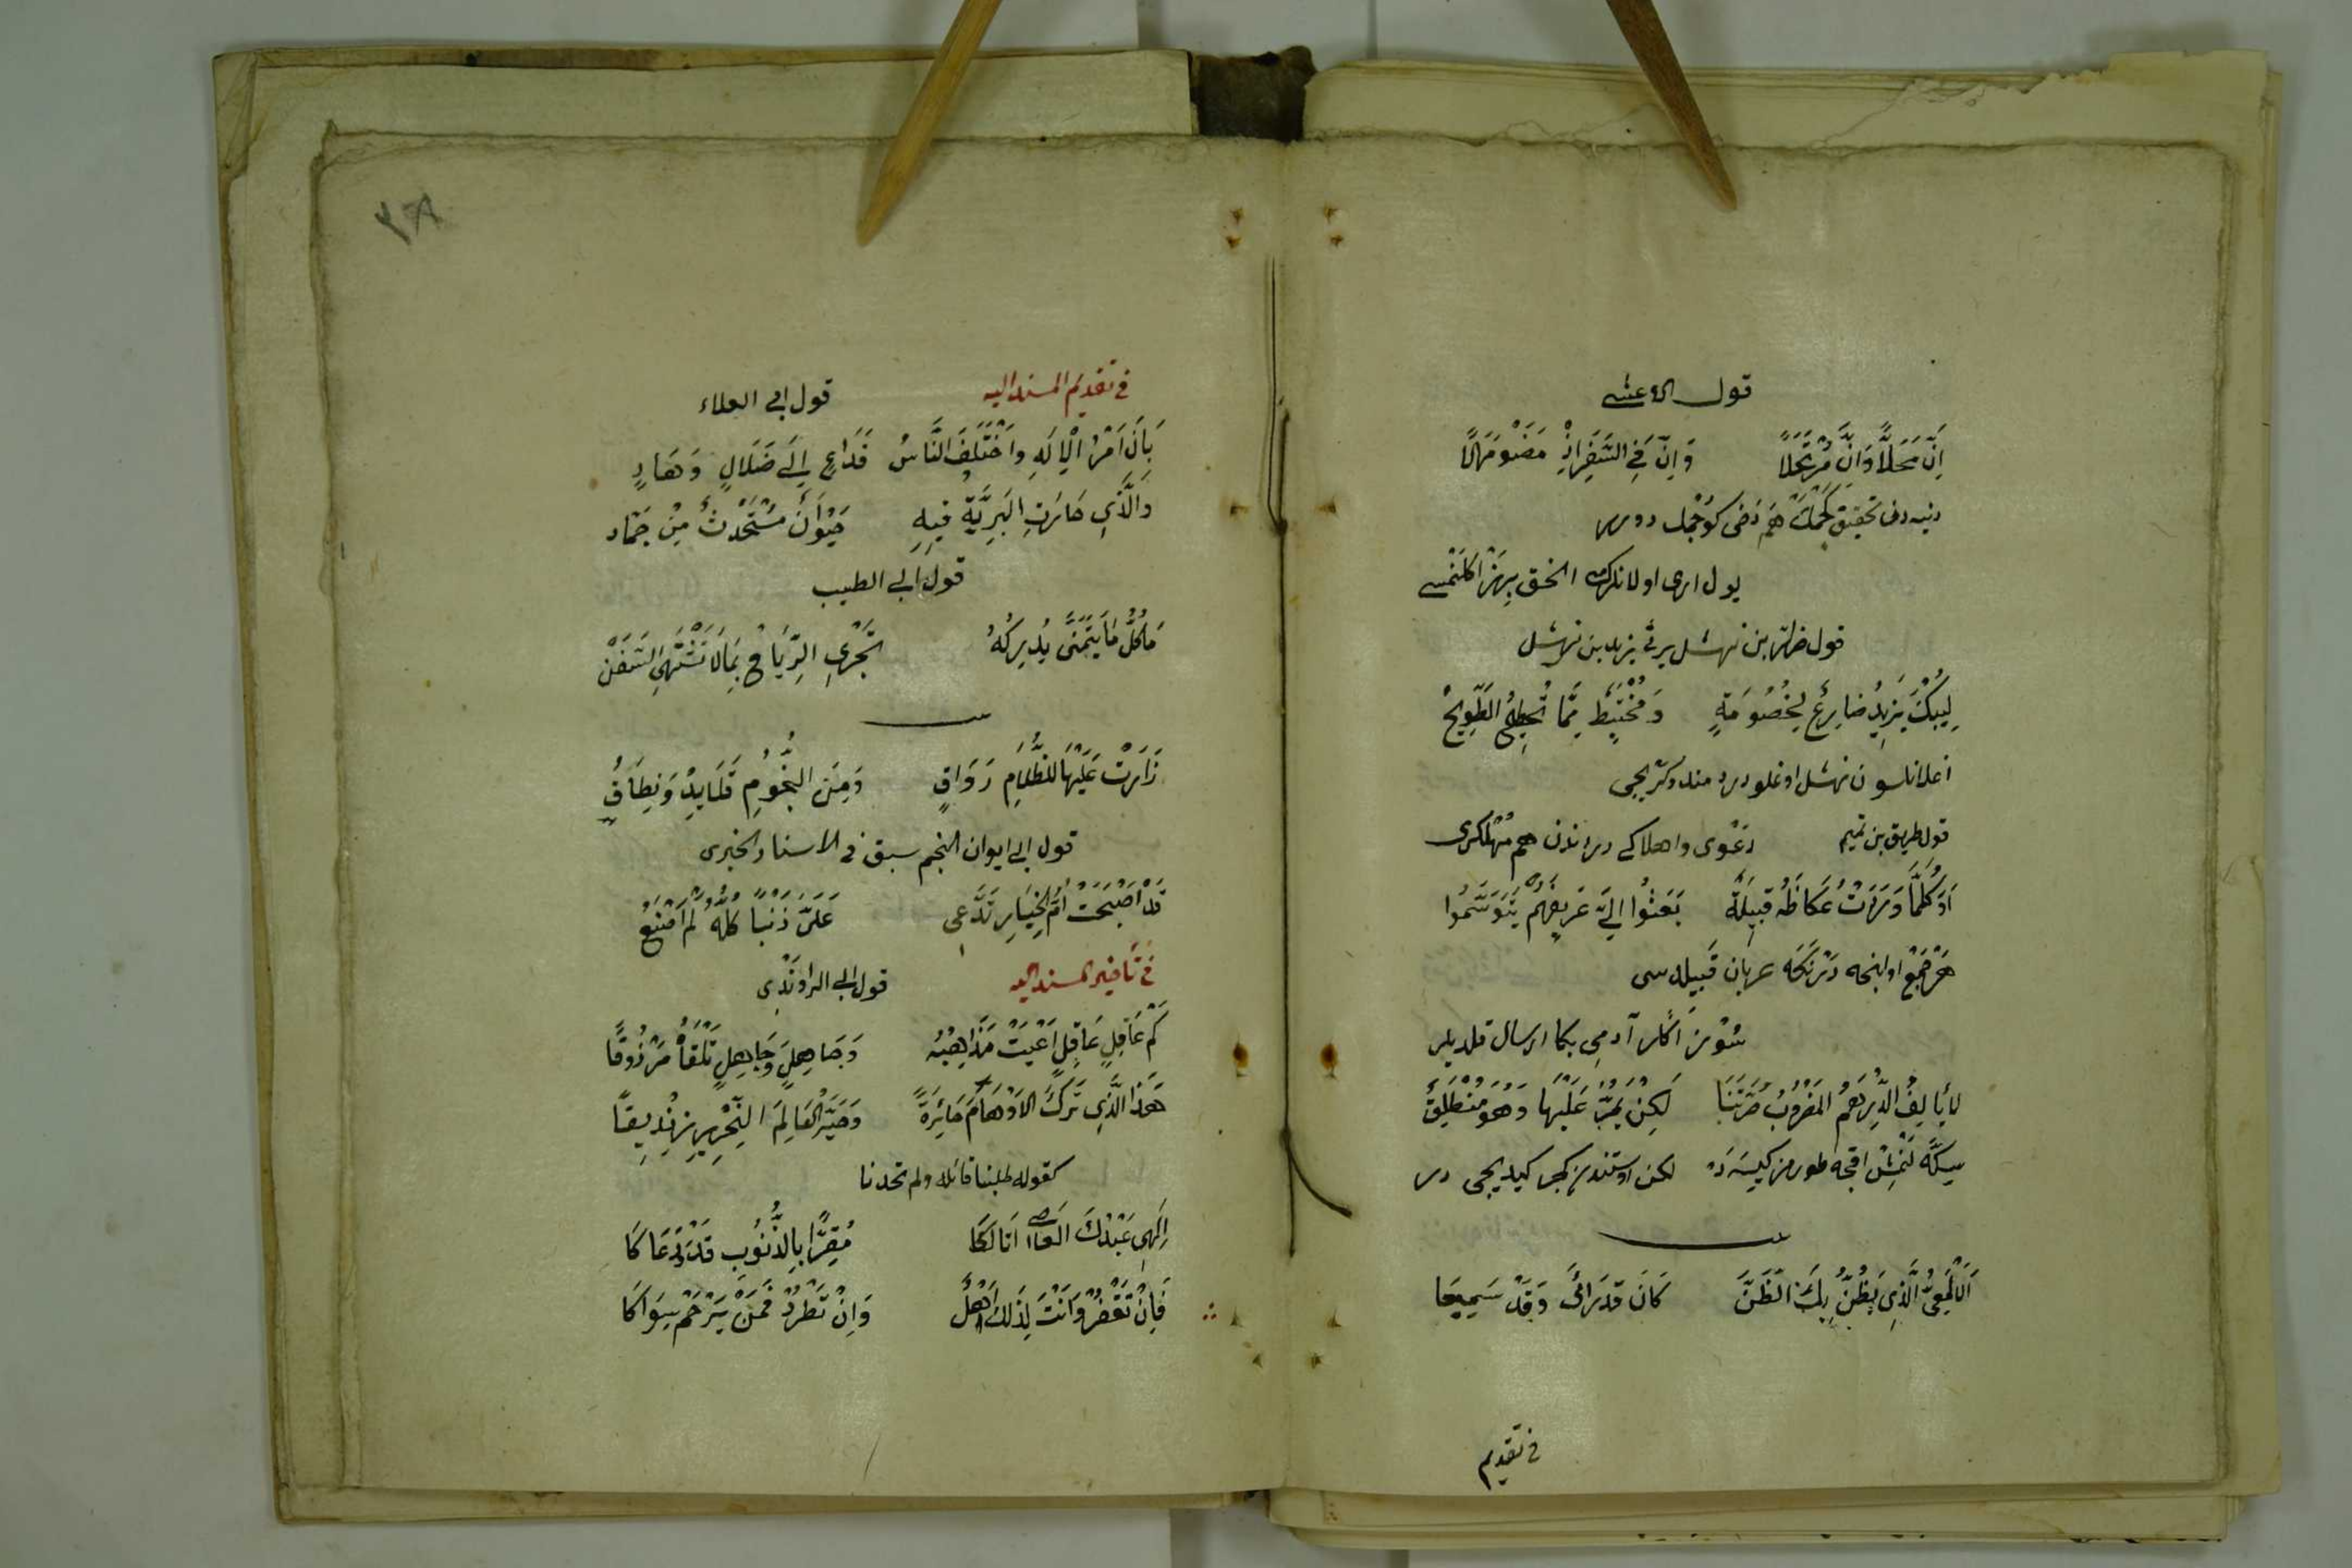 قول الاعشى
اِنَّ مَحَلاًّ وَاِنَّ مُرْتَحَلاً وَاِنَّ فِي السَّفَرِ اِذْ مَضَوْ مَهَلًا
دنيه دن تحقيق هم كوجمك دورر
يول ارى اولانلرك
قول ضرار بن نهشل يرثى يزيد بن نهشل
لِيُبْكَ يَزِيدُ ضَارِعٌ لِخُصُومَةٍ وَمُخْتَبِطٌ مِّمَّا تُطِيحُ الطَّوِيحُ
اغلانلسون نهشل اوغلو
قول طريق بن تميم
اَوَ كُلَّمَا وَرَدَتْ عُكَاظُ قَبِيلَةٌ بَعَثُوا اِلَيَّ عَرِيفَهُمْ يَتَوَسَّمُوا
عربان قبيله سى
آدمى بكا ارسال قلديلر
لا يَالِفُ الدِّرْهَمُ المَضْرُوبُ صُرَّتَنَا لَكِنْ يَمُرُّ عَلَيْهَا وَهُوَ مُنْطَلِقٌ
سكّه لنمش اقچه طورمز كيسه ده لكن اوستندن كچر كيديجى در
اَلْاَلْمَعِيُّ الَّذِي يَظُنُّ بِكَ الظَّنَّ كَاَنَ قَدْ رَاَىَ وَقَدْ سَمِيعَا
فى تقديم
٢٨
فى تقديم المسند اليه قول ابى العلاء
بَانَ اَمْرُ الْاِلَهِ وَاخْتَلَفَ النَّاسُ فَدَاعٍ اِلَى ضَلَالٍ وَهَادٍ
وَالَّذِي حَارَتِ البَرِيَّةُ فِيهِ حَيَوَانٌ مُسْتَحْدَثٌ مِنْ جَمَادِ
قول ابى الطيب
مَا كُلُّ مَا يَتَمَنَّى يُدْرِكُهُ تَجْرِى الرِّيَاحُ بِمَا لَا تَشْتَهِى السَّفَنْ
زَارَتْ عَلَيْهَا لِلظَّلَامِ رَوَاقٍ وَمِنَ النُّجُومِ قَلَايِدٌ وَنِطَاقٍ
قول ابى ايوان النجم سبق فى الاسناد الخبرى
قَدْ اَصْبَحَتْ اُمُّ الْخِيَارِ تَدَّعِى عَلَىَّ ذَنْبًا كُلُّهُ لَمْ اَصْنَعْ
فى تأخير المسند اليه قول ابى الراوندى
كَمْ عَاقِلٍ عَاقِلٍ اَعْيَتْ مَذَاهِبُهُ وَجَاهِلٍ وَجَاهِلٍ تَلْقَاهُ مَرْزُوقًا
هَذَا الَّذِى تَرَكَ الاَوْهَامَ حَائِرَةً وَصَيَّرَ الْعَالِمَ النِّحْرِيرَ زِنْدِيقًا
كقوله طلبنا قائله ولم تجدنا
اِلَهِى عَبْدُكَ العاصى اَتَاكَا مُقِرًّا بِالذُّنُوبِ قَدْ دَعَاكَا
فَاِنْ تَغْفِرْ وَاَنْتَ لِذَلِكَ اَهْلٌ وَاِنْ تَطْرُدْ فَمَنْ يَرْحَمْ سِوَاكَا